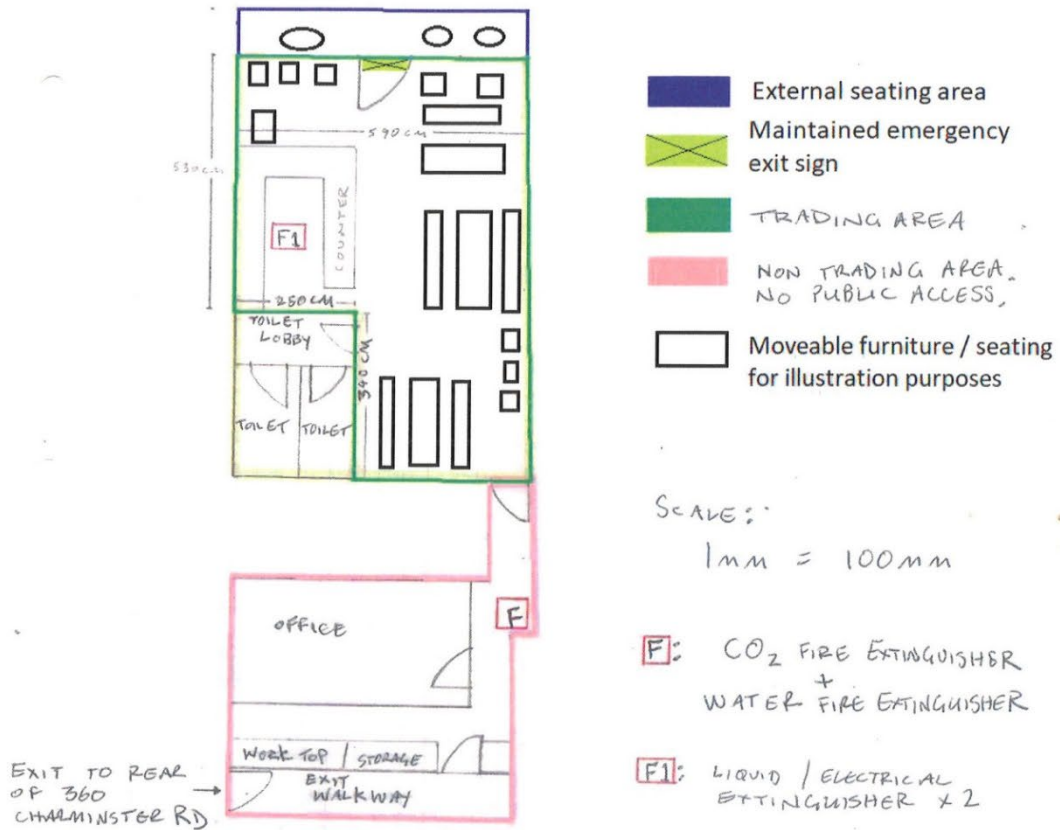 590CM
530cm
COUNTER
F1
250CM
TOILET
LOBBY
340CM
TOILET
TOILET
OFFICE
F
WORK TOP
STORAGE
EXIT
WALKWAY
EXIT TO REAR
OF 360
CHARMINSTER RD
External seating area
Maintained emergency
exit sign
TRADING AREA
NON TRADING AREA.
NO PUBLIC ACCESS.
Moveable furniture / seating
for illustration purposes
SCALE:
1mm = 100mm
F: CO2 FIRE EXTINGUISHER
+
WATER FIRE EXTINGUISHER
F1: LIQUID / ELECTRICAL
EXTINGUISHER x 2